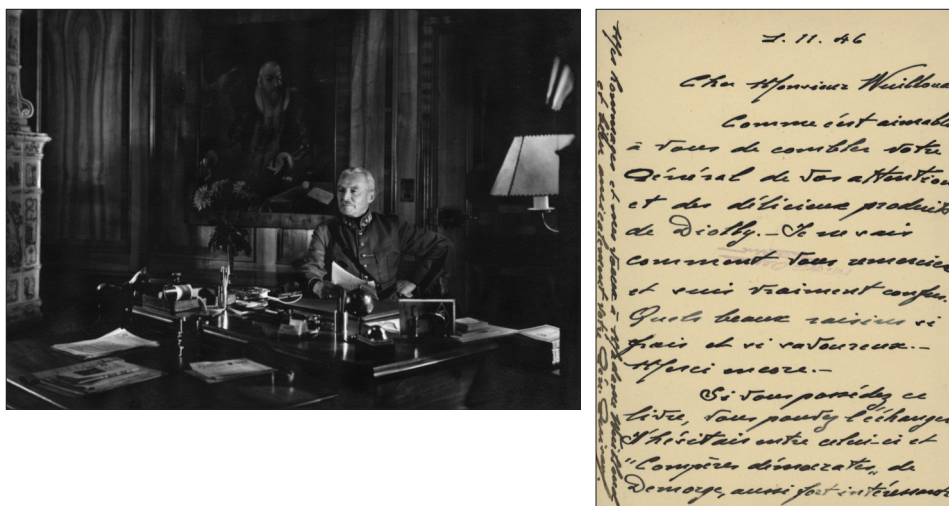 7. 11. 46
Cher Monsieur Wuilloud
Comme c'est aimable
à vous de combler votre
Général de vos attentions
et des délicieux produits
de Diolly. – Je ne sais
comment vous remercier
et suis vraiment confus.
Quels beaux raisins si
frais et si savoureux. –
Merci encore. –
Si vous possédez ce
livre, vous pouvez l'échanger
J'hésitais entre celui-ci et
"Compères démocrates" de
Demorge, aussi fort intéressant
Mes hommages et mes vœux à Madame Wuilloud
et bien amicalement votre Gén. Guisan.